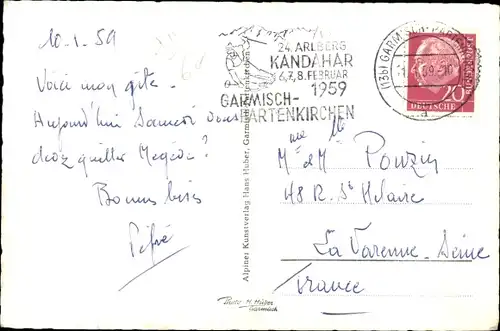 10.1.59
Voici mon gîte.
Aujourd'hui Samedi vous
devez quitter Megève?
Bonnes bises
24. ARLBERG
KANDAHAR
6., 7., 8. FEBRUAR
1959
GARMISCH-
PARTENKIRCHEN
(13b) GARMISCH-PARTENK
59.-10
a
20
DEUTSCHE
BUNDESPOST
Alpiner Kunstverlag Hans Huber, Garmisch-Partenkirchen
M et Mme Ponzin
48 R. St Hilaire
La Varenne-Seine
France
Photo H. Huber
Garmisch